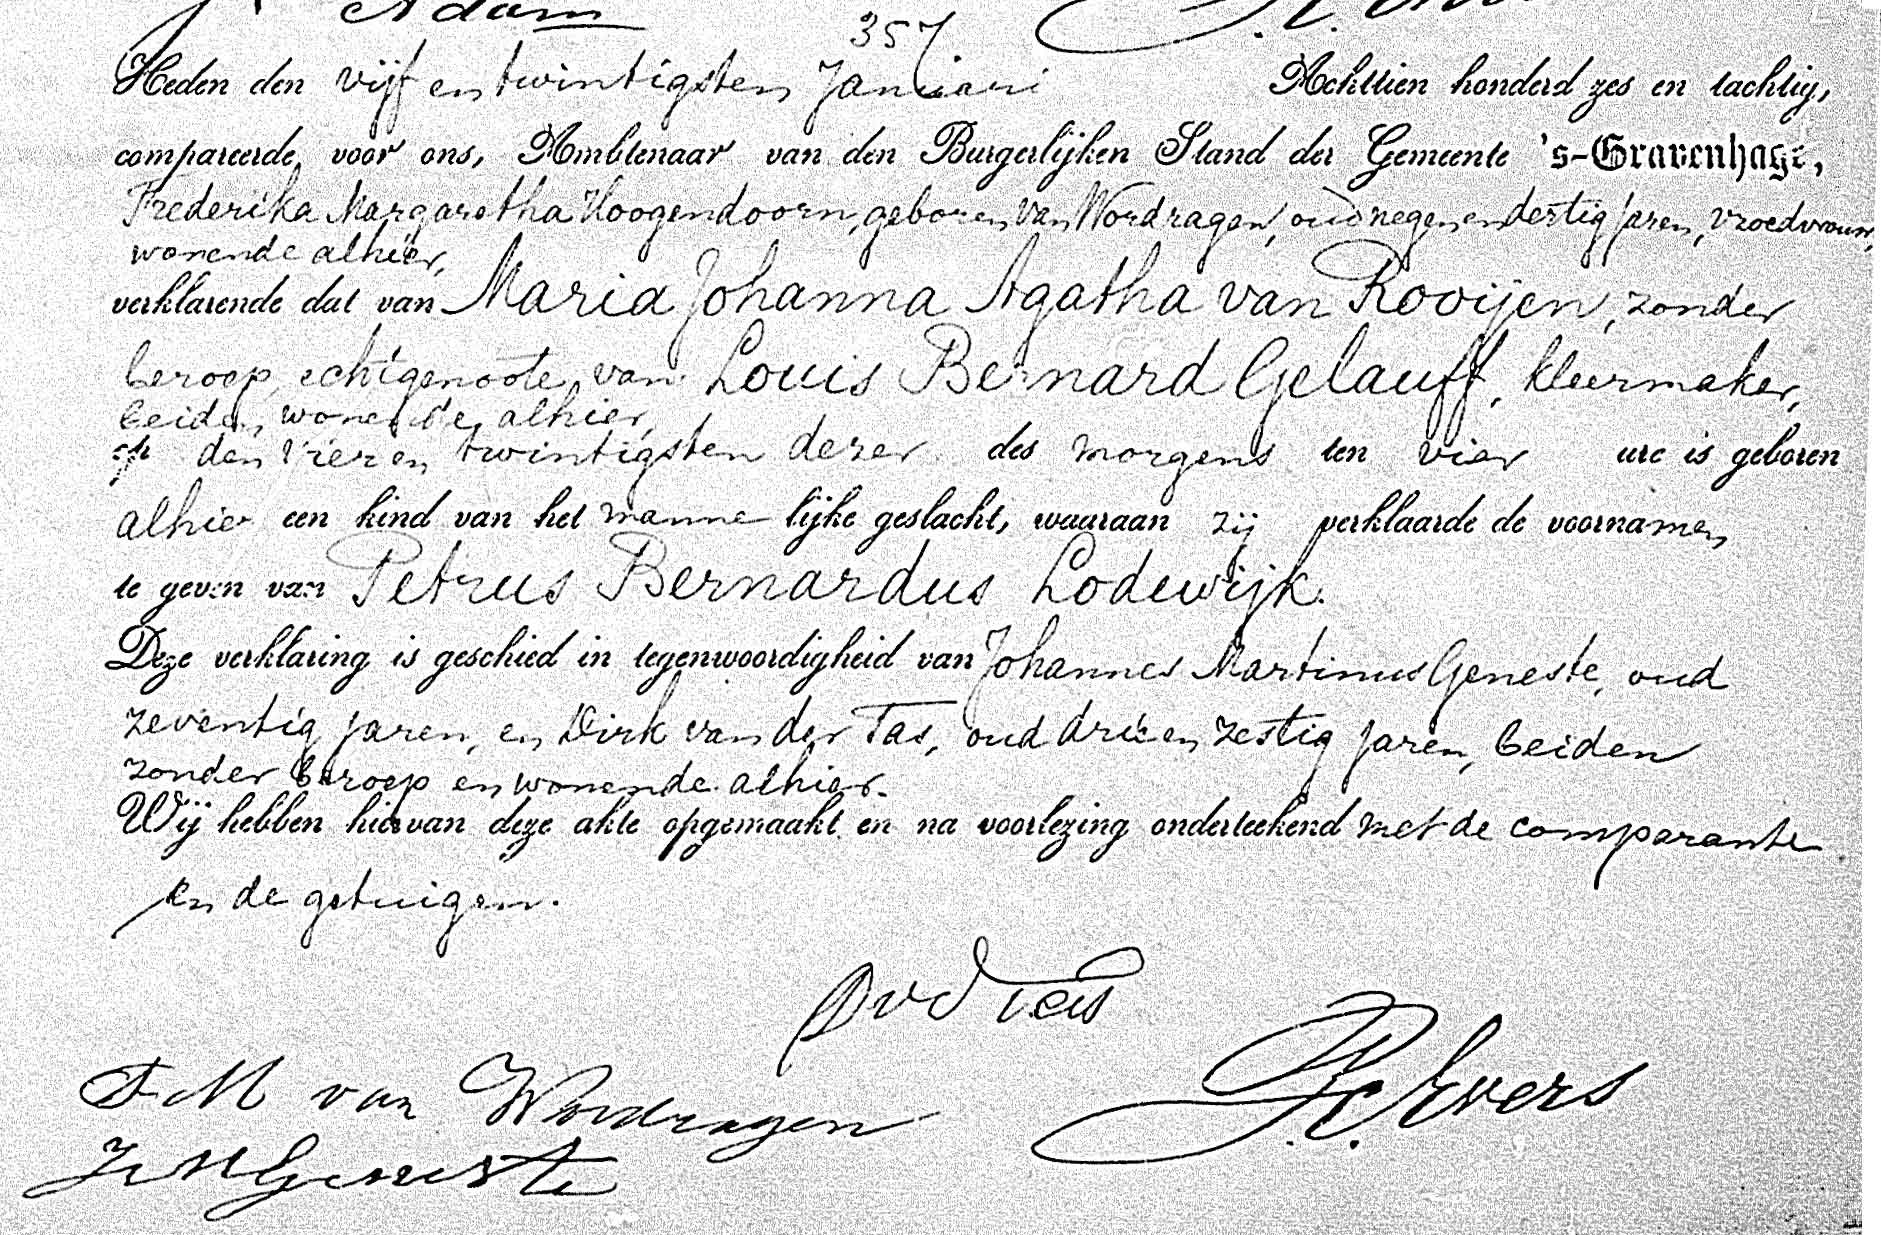 Adam
357
Heden den vijf en twintigsten Januari Achttien honderd zes en tachtig,
compareerde voor ons, Ambtenaar van den Burgerlijken Stand der Gemeente 's-Gravenhage,
Frederika Margaretha Hoogendoorn, geboren van Wordragen, oud negen en dertig jaren, vroedvrouw,
wonende alhier,
verklarende dat van Maria Johanna Agatha van Rooijen, zonder
beroep, echtgenoote van Louis Bernard Gelauff, kleermaker,
beiden wonende alhier,
op den vier en twintigsten dezer des morgens ten vier ure is geboren
alhier een kind van het mannelijke geslacht, waaraan zij verklaarde de voornamen
te geven van Petrus Bernardus Lodewijk.
Deze verklaring is geschied in tegenwoordigheid van Johannes Martinus Geneste, oud
zeventig jaren, en Dirk van der Tas, oud drie en zestig jaren, beiden
zonder beroep en wonende alhier.
Wij hebben hiervan deze akte opgemaakt en na voorlezing onderteekend met de comparante
en de getuigen.
DvdTas
F M van Wordragen
Evers
J M Geneste